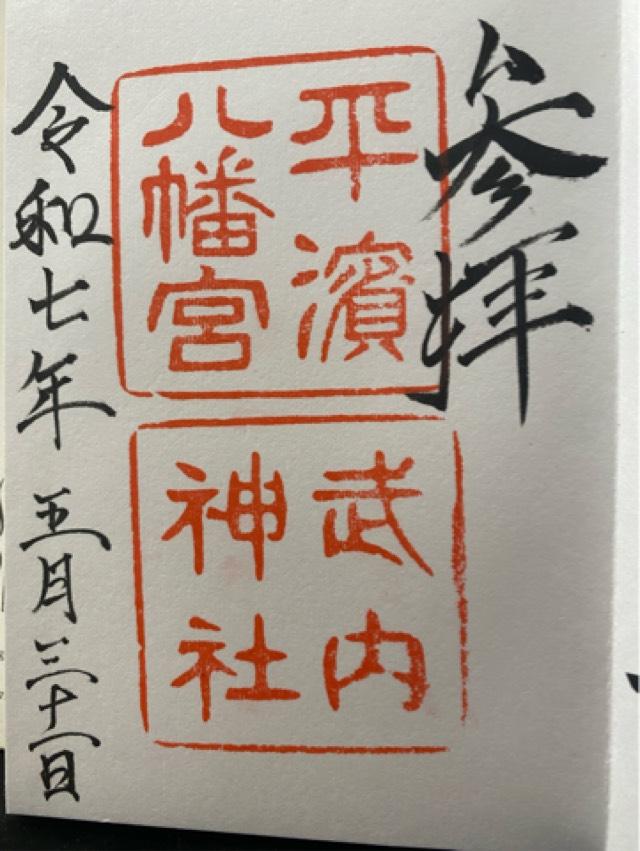 参拝
平濱
八幡宮
武内
神社
令和七年 五月三十一日